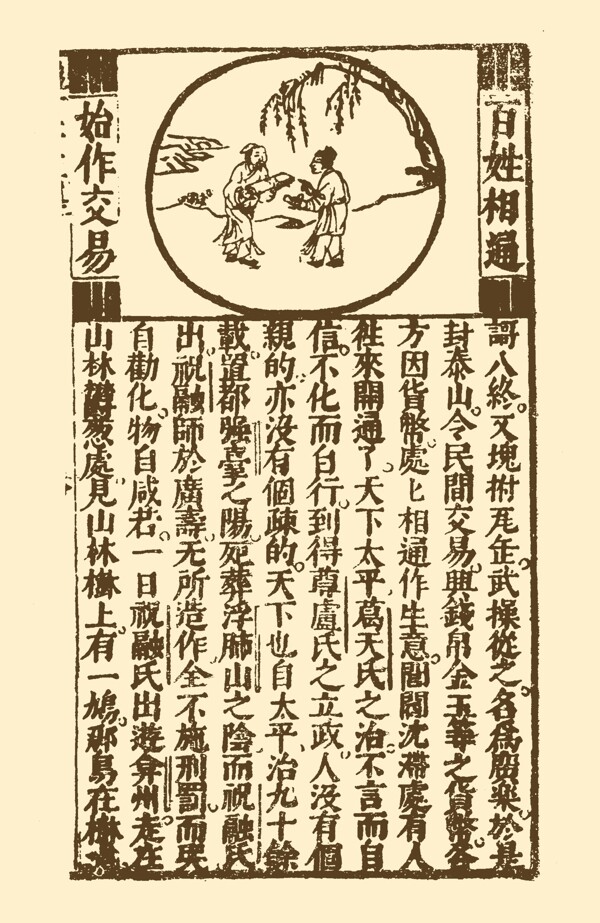 百姓相通
始作交易
謌八終又塊拊尾缶武操從之名爲廣樂於是
封泰山令民間交易興錢帛金玉等之貨幣各
方因貨幣處匕相通作生意閭閻沈滯處有人
徃來開通了天下太平葛天氏之治不言而自
信不化而自行到得尊盧氏之立政人没有個
親的亦没有個疎的天下也自太平治九十餘
載置都強臺之陽死葬浮肺山之陰而祝融氏
出祝融師於廣壽无所造作全不施刑罰而民
自勸化物自咸若一日祝融氏出遊弇州走在
山林鬱葱處見山林樹上有一鳩那鳥在樹